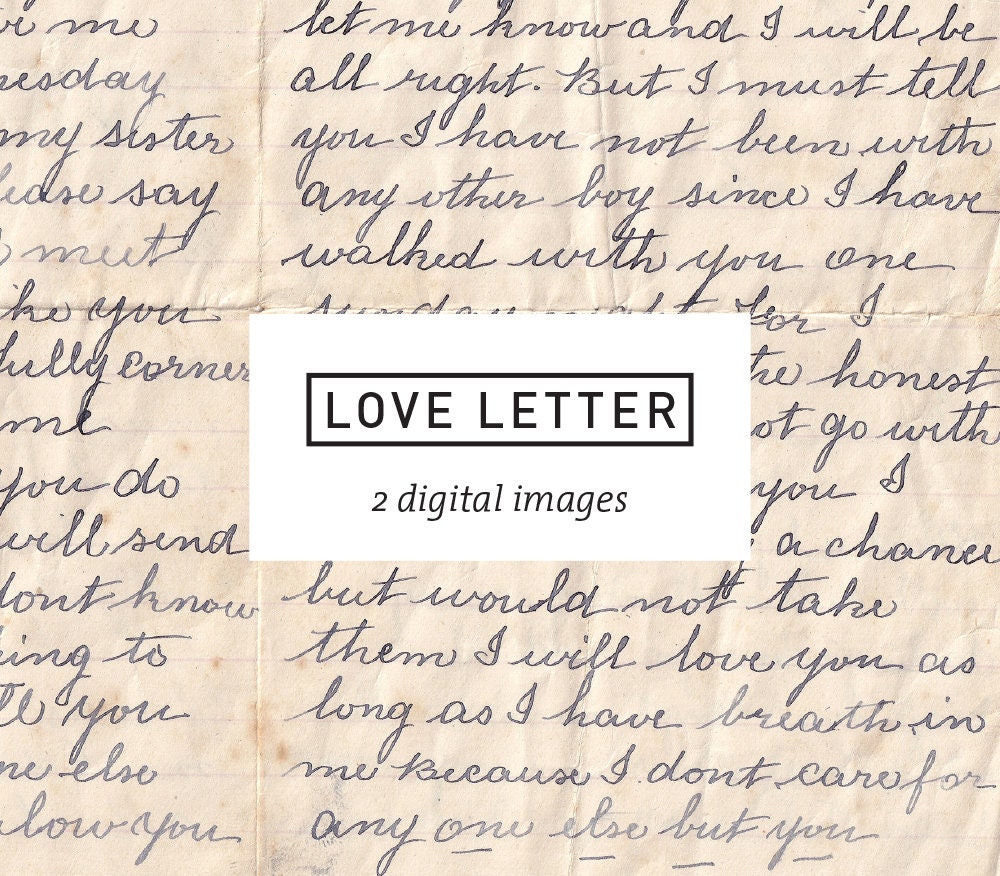 ve me
nesday
my sister
lease say
meet
ike you
fully corner
me
you do
will send
dont know
king to
you
ne else
low you
let me know and I will be
all right. But I must tell
you I have not been with
any other boy since I have
walked with you one
sunday night for I
the honest
not go with
you I
a chance
but would not take
them I will love you as
long as I have breath in
me Because I dont care for
any one else but you
LOVE LETTER
2 digital images